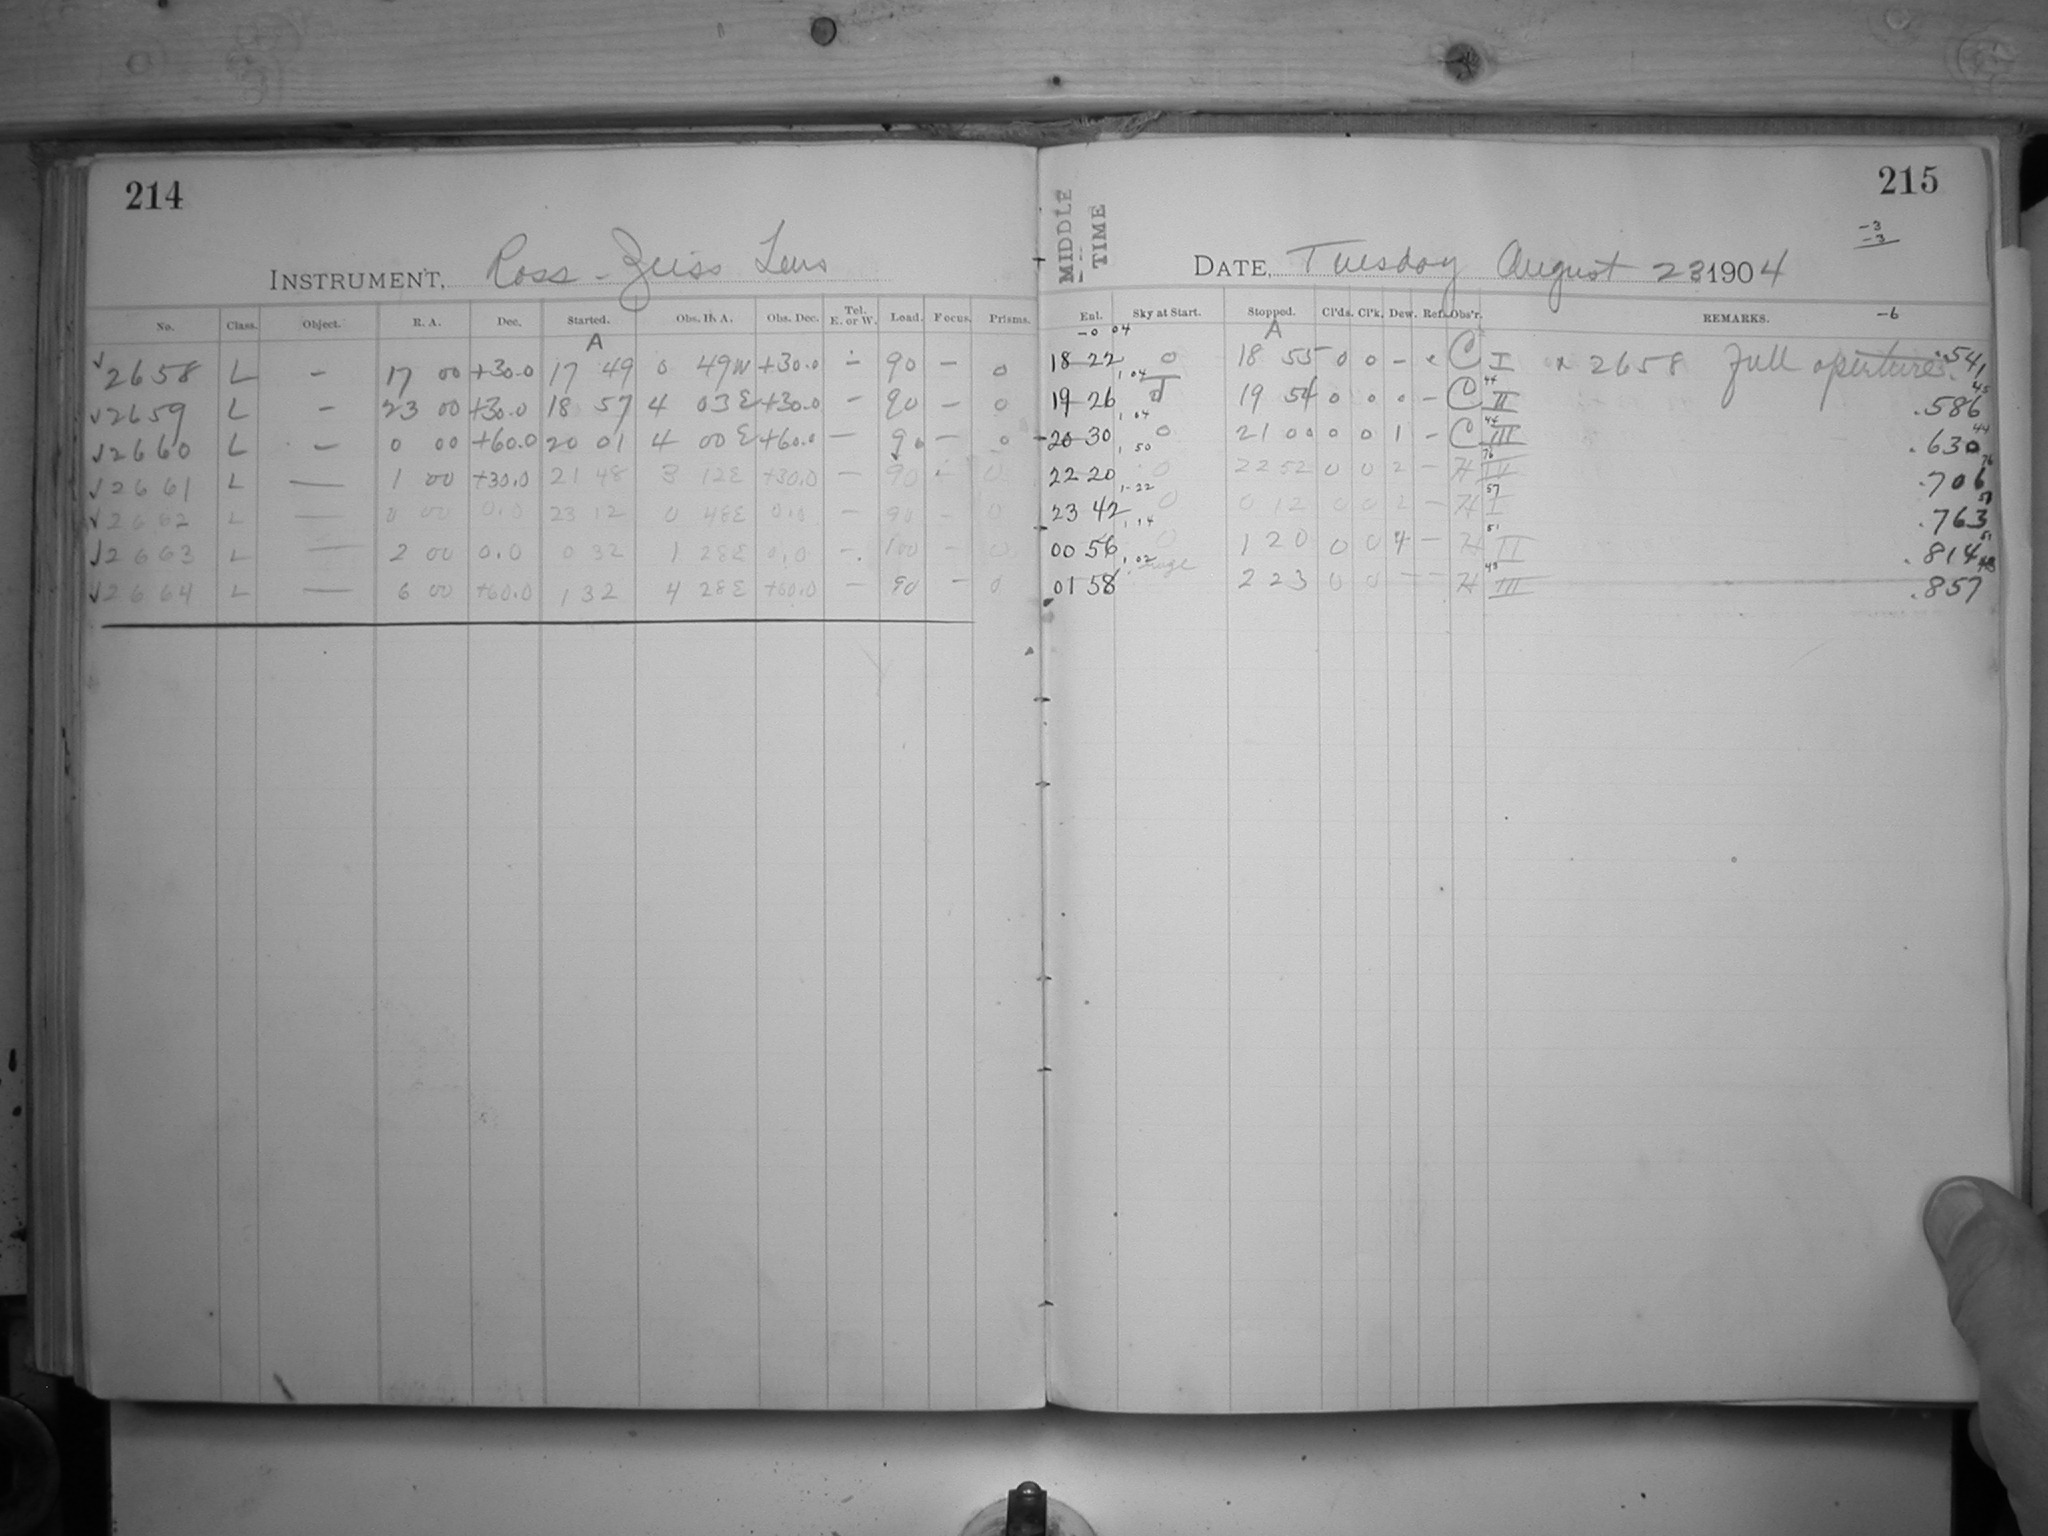 214
INSTRUMENT, Ross-Zeiss Lens
No. Class. Object. R. A. Dec. Started. Obs. H. A. Obs. Dec. Tel. E. or W. Load. Focus. Prisms.
A
√2658 L - 17 00 +30.0 17 49 0 49W +30.0 - 90 - 0
√2659 L - 23 00 +30.0 18 57 4 03E +30.0 - 90 - 0
√2660 L - 0 00 +60.0 20 01 4 00E +60.0 - 90 - 0
√2661 L - 1 00 +30.0 21 48 3 12E +30.0 - 90 - 0
√2662 L - 0 00 0.0 23 12 0 48E 0.0 - 90 - 0
√2663 L - 2 00 0.0 0 32 1 28E 0.0 - 100 - 0
√2664 L - 6 00 +60.0 1 32 4 28E +60.0 - 90 - 0
215
MIDDLE TIME
-3
-3
DATE, Tuesday August 23 1904
Enl. Sky at Start. Stopped. Cl'ds. Cl'k. Dew. Ref. Obs'r. REMARKS. -6
-0 04 A
18 22 0 18 55 0 0 - × C I × 2658 full apertures .541
1 04 44 45
19 26 19 54 0 0 0 - C II .586
1 04 44 44
20 30 0 21 00 0 0 1 - C III .630
1 50 76 76
22 20 0 22 52 0 0 2 - H III .706
1 22 57 57
23 42 0 0 12 0 0 2 - H I .763
1 14 51 51
00 56 0 1 20 0 0 4 - H II .814
1 02 43 43
01 58 2 23 0 0 - - H III .857